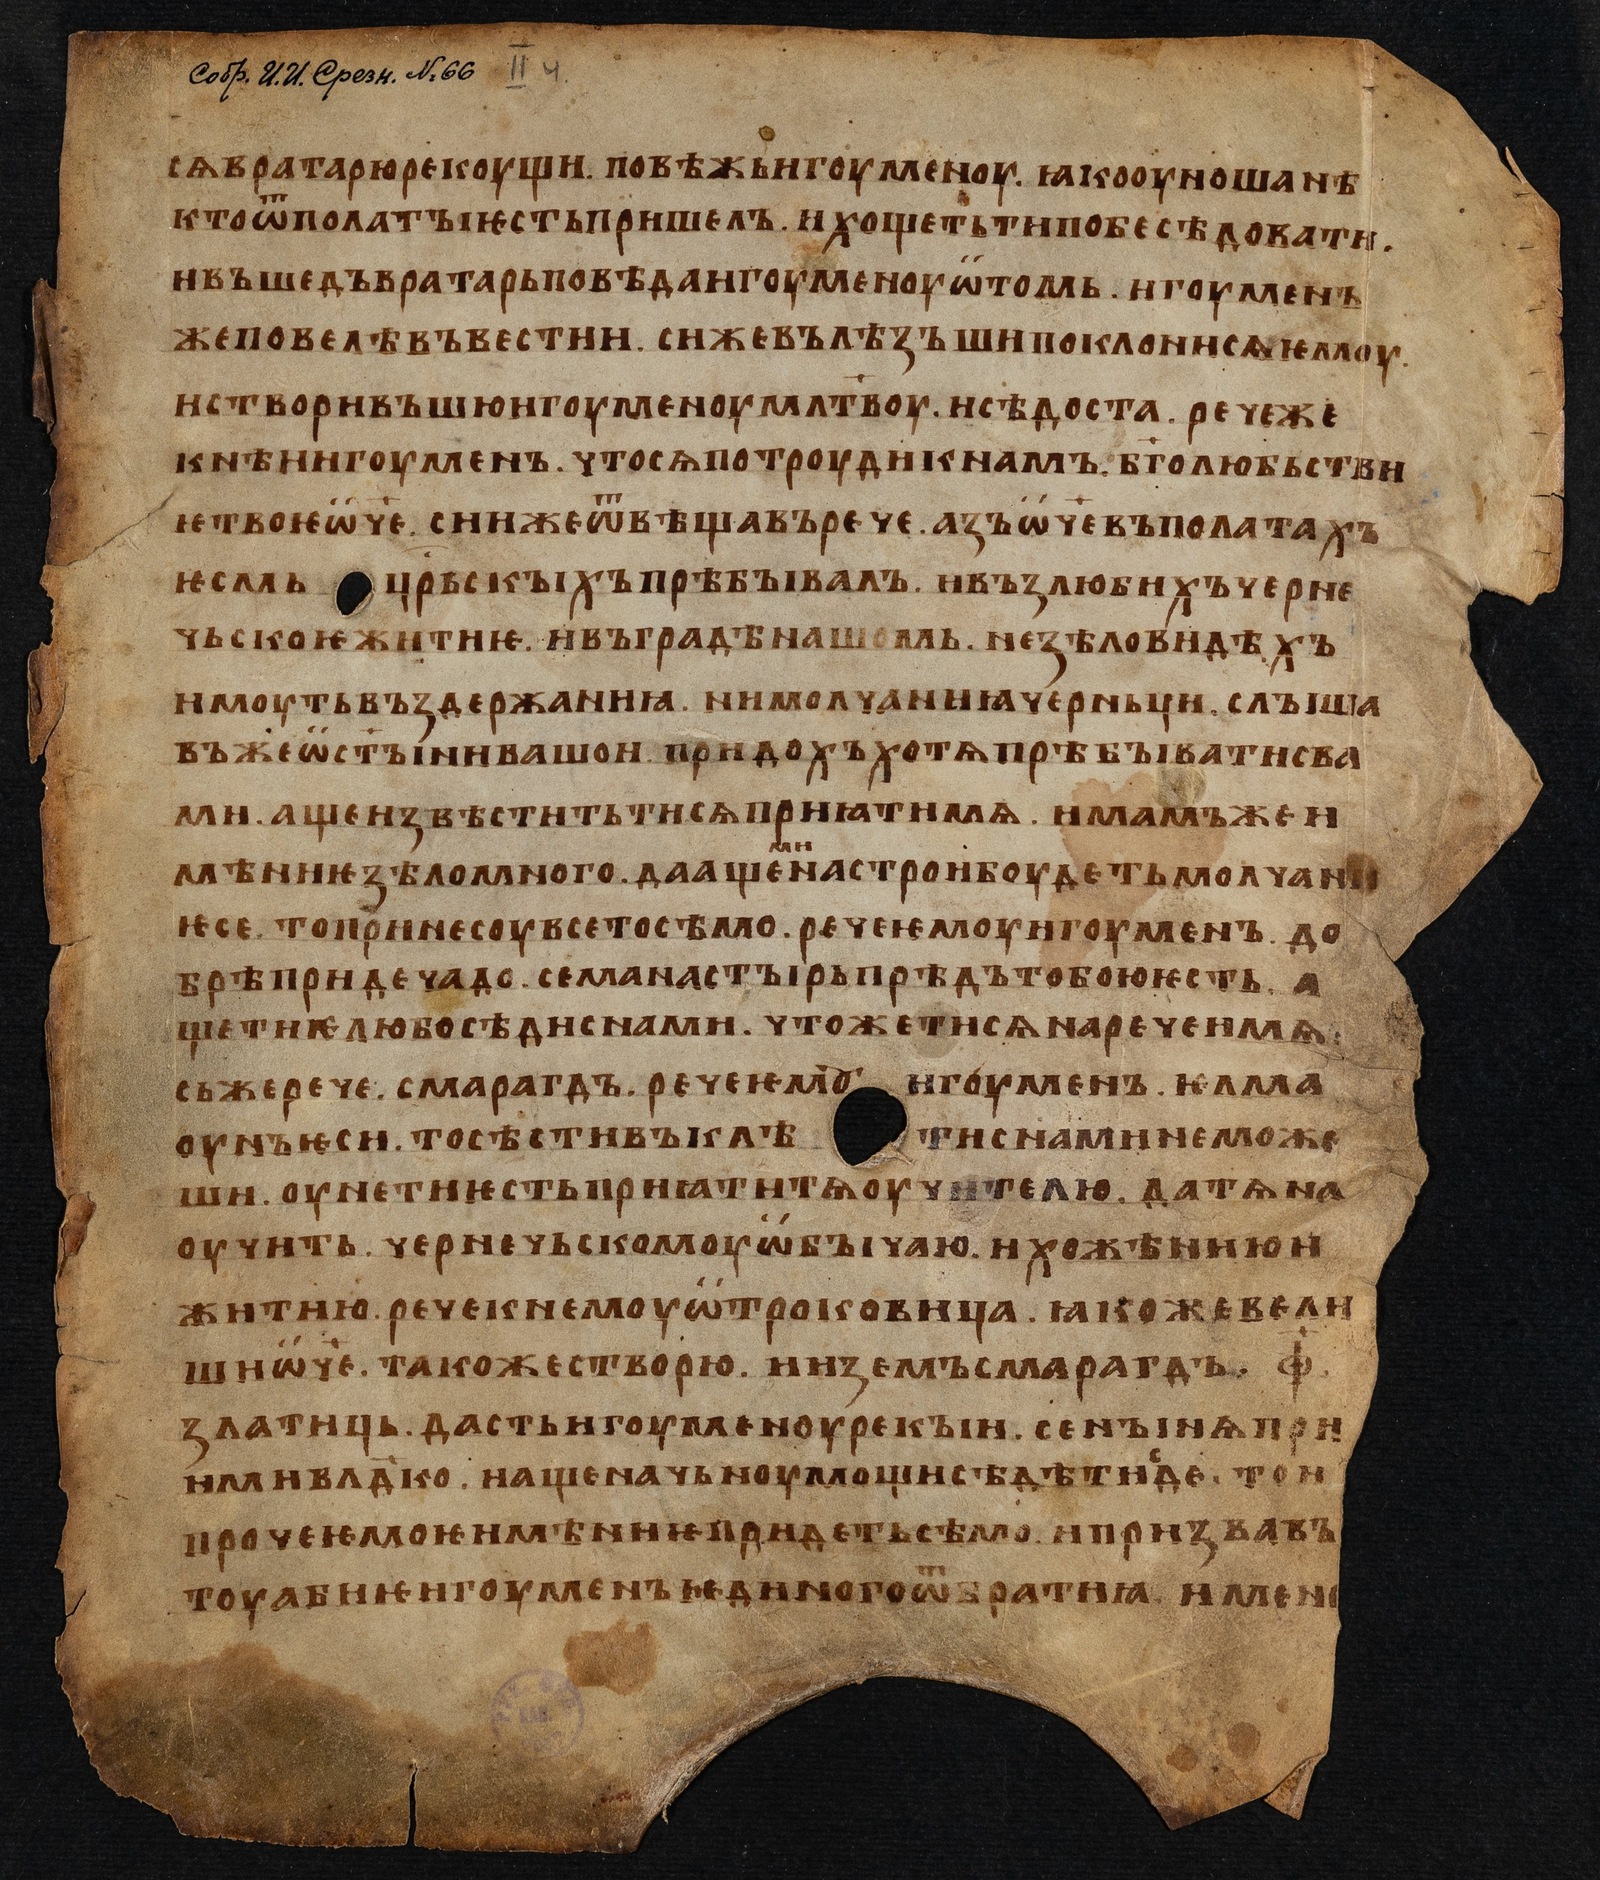 Собр. И.И. Срезн. №66 II ч.
сѧвратарюрекоущи. повѣжьигоуменоу. ꙗкооуношанѣ
ктоѿполатъıѥстьпришелъ. ихощетьтипобесѣдовати.
ивъшедъвратарьповѣдаигоуменоуѡтомь. игоуменъ
жеповелѣвъвестии. сижевълѣзъшипоклонисѧѥмоу.
истворивъшюигоуменоумл҃твоу. исѣдоста. речеже
кнѣиигоуменъ. чтосѧпотроудикнамъ. б҃голюбьстви
ѥтвоѥѡч҃е. сиижеѿвѣщавърече. азъѡч҃евъполатахъ
ѥсмь цр҃ьскъıхъпрѣбъıвалъ. ивъзлюбихъчерне
чьскоѥжитиѥ. ивъградѣнашомь. незѣловидѣхъ
имоутьвъздержаниꙗ. нимолчаниꙗчерньци. слъıша
въжеѡст҃ъıнивашои придохъхотѧпрѣбъıватисва
ми. ащеизвѣститьтисѧприꙗтимѧ. имамъжеи
мѣниѥзѣломного. даащеминастроибоудетьмолчани
ѥсе. топринесоувсетосѣмо. речеѥмоуигоуменъ. до
брѣпридечадо. семанастъıрьпрѣдътобоюѥсть. а
щетиѥлюбосѣдиснами. чтожетисѧнаречеимѧ.
сьжерече. смарагдъ. речеѥмоу игоуменъ. ѥлма
оунъѥси. тосѣстивъклѣ тиснаминеможе
ши. оунетиѥстьприꙗтитѧоучителю. датѧна
оучить. чернечьскомоуѡбъıчаю. ихожѣниюи
житию. речекнемоуѡтроковица. ꙗкожевели
шиѡч҃е. такожестворю. ииземъсмарагдъ. ф҃.
златиць. дастьигоуменоурекъıи. сенъıнѧпри
имивлд҃ко. иащеначьноумощисѣдѣтисде. тои
прочеѥмоѥимѣниѥпридетьсѣмо. ипризвавъ
тоуабиѥигоуменъѥдиногоѿбратиꙗ. имено